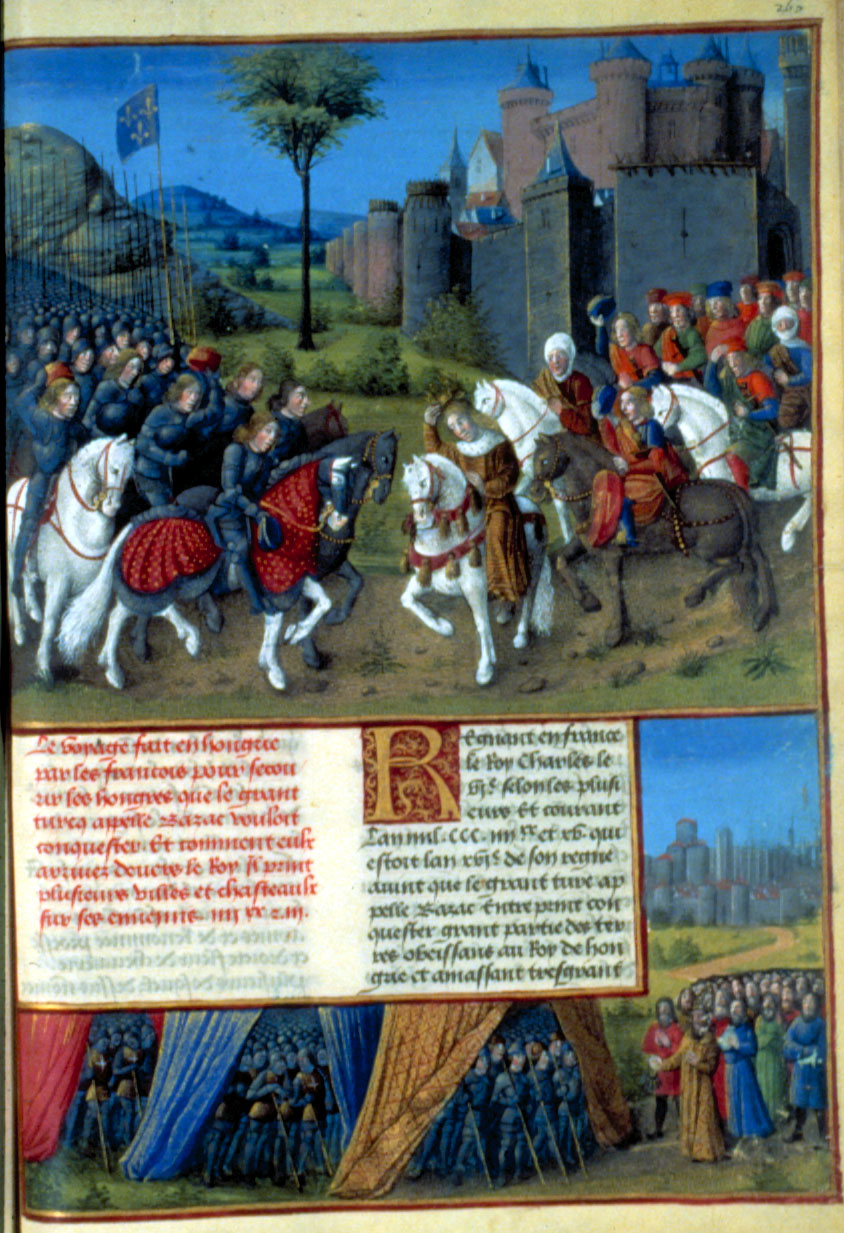 265
Le voyage fait en hongrie
par les francois pour secou
rir les hongres que le grant
turcq appelle Bazac vouloit
conquester. Et comment eulx
arrivez devers le Roy Il print
plusieurs villes et chasteaulx
sur ses ennemis. iiii xx z iii.
REgnant en france
le Roy Charles le
vje selon les plusi
eurs Et courant
Lan mil. ccc. iiii xx et xv. qui
estoit lan xvje de son regne
avint que le grant turc ap
pelle Bazac Entreprint con
quester grant partie des ter
res obeissans au Roy de hon
grie et amassant tresgrant